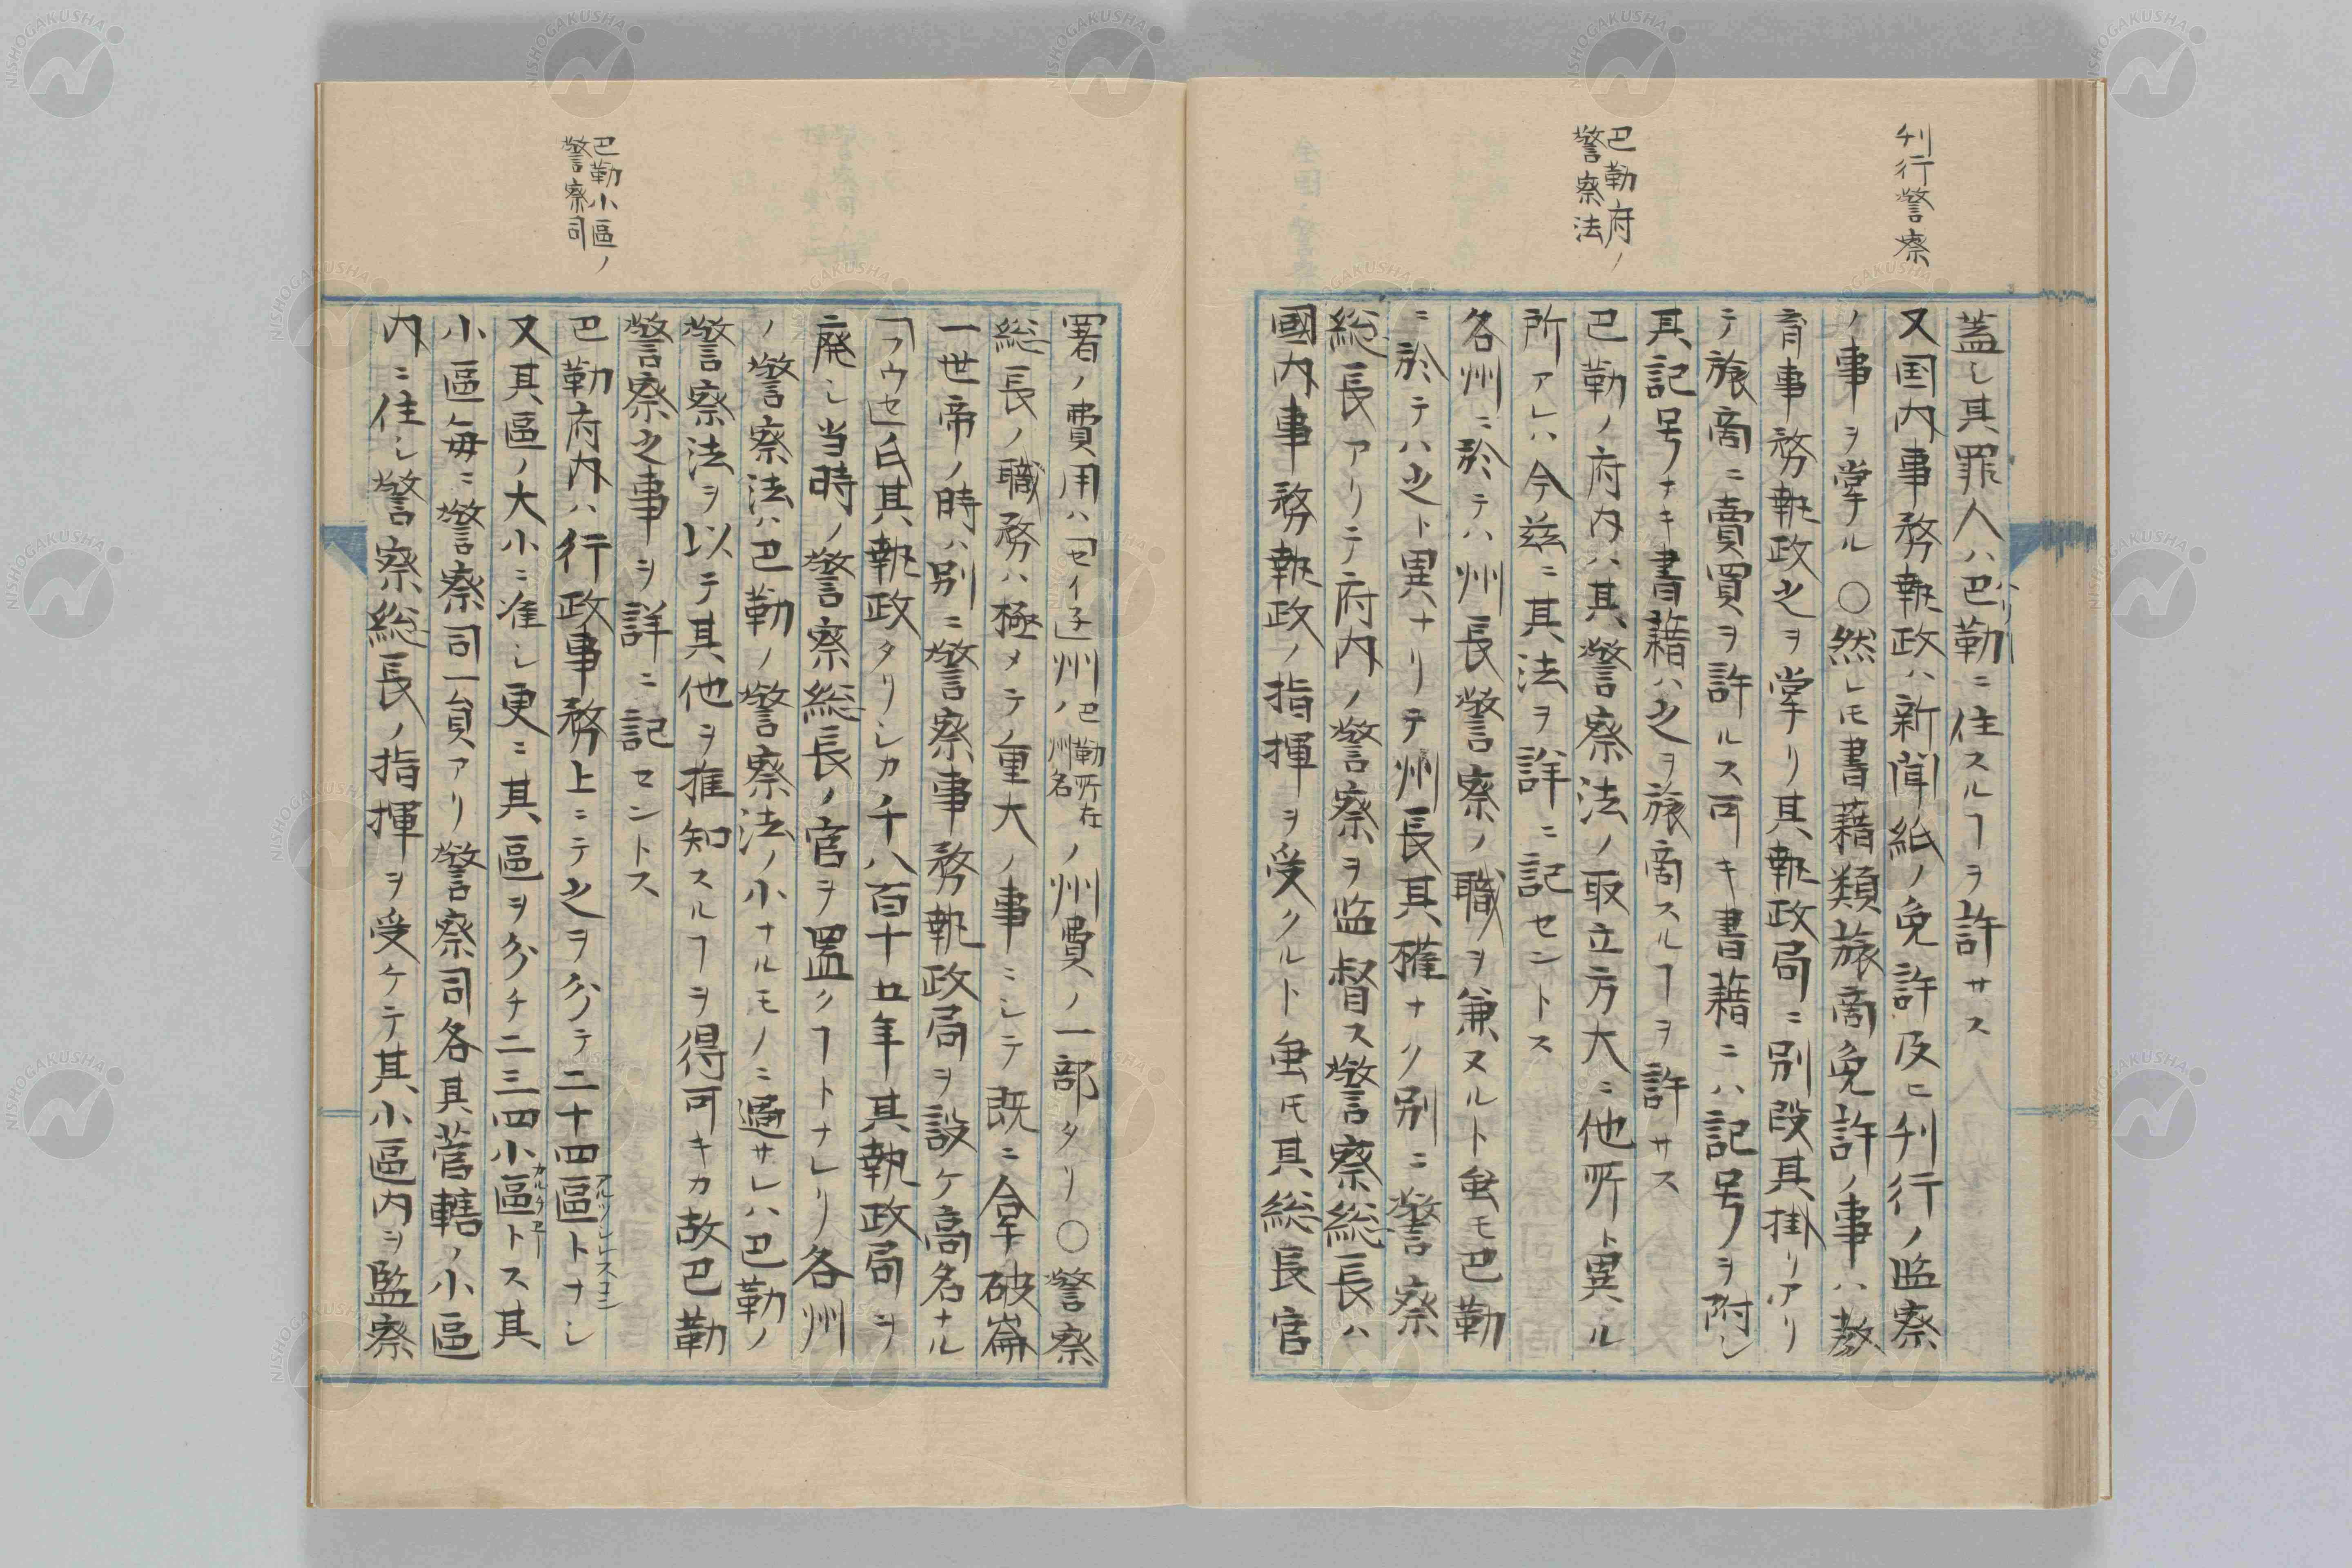 刊行警察
巴勒府ノ
警察法
蓋シ其罪人ハ巴勒ニ住スルヿヲ許サス
パリー
又国内事務執政ハ新聞紙ノ免許及ヒ刊行ノ監察
ノ事ヲ掌ル〇然レ𪜈書藉類旅商免許ノ事ハ教
育事務執政之ヲ掌リ其執政局ニ別段其掛リアリ
テ旅商ニ賣買ヲ許ルス可キ書藉ニハ記号ヲ附シ
其記号ナキ書藉ハ之ヲ旅商スルヿヲ許サス
巴勒ノ府内ハ其警察法ノ取立方大ニ他所ト異ル
所アレハ今茲ニ其法ヲ詳ニ記セントス
各州ニ於テハ州長警察ノ職ヲ兼ヌルト虽モ巴勒
ニ於テハ之ト異ナリテ州長其權ナク別ニ警察
総長アリテ府内ノ警察ヲ监督ス警察総長ハ
國内事務執政ノ指揮ヲ受クルト虽𪜈其総長官
巴勒小區ノ
警察司
署ノ費用ハ「セイ子」州ノ巴勒所在州名ノ州費ノ一部タリ〇警察
総長ノ職務ハ極メテ重大ノ事ニシテ既ニ拿破崙
一世帝ノ時ハ別ニ警察事務執政局ヲ設ケ高名ナル
「フウセ」氏其執政タリシカ千八百十五年其執政局ヲ
廃シ当時ノ警察総長ノ官ヲ置クヿトナレリ各州
ノ警察法ハ巴勒ノ警察法ノ小ナルモノニ過サレハ巴勒ノ
警察法ヲ以テ其他ヲ推知スルヿヲ得可キカ故巴勒
警察之事ヲ詳ニ記セントス
巴勒府内ハ行政事務上ニテ之ヲ分テ二十四區トナシ
又其區ノ大小ニ准シ更ニ其區ヲ分チ二三四小區トス其
小區毎ニ警察司一員アリ警察司各其菅轄ノ小區
内ニ住シ警察総長ノ指揮ヲ受ケテ其小區内ヲ監察